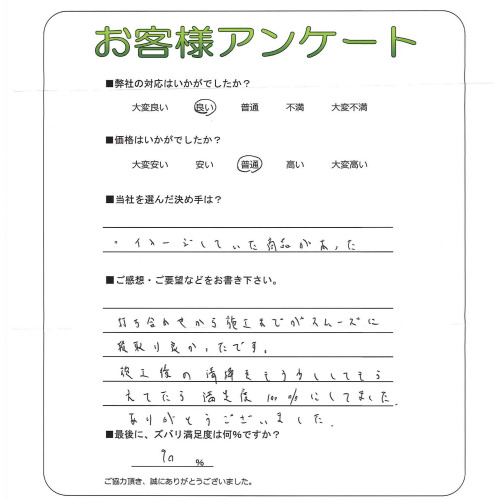 お客様アンケート
■弊社の対応はいかがでしたか?
大変良い 良い 普通 不満 大変不満
■価格はいかがでしたか?
大変安い 安い 普通 高い 大変高い
■当社を選んだ決め手は?
・イメージしていた商品があった
■ご感想・ご要望などをお書き下さい。
打ち合わせから施工までがスムーズに
段取り良かったです。
施工後の清掃をもう少ししてもら
えてたら満足度100%にしてました。
ありがとうございました。
■最後に、ズバリ満足度は何%ですか?
90 %
ご協力頂き、誠にありがとうございました。